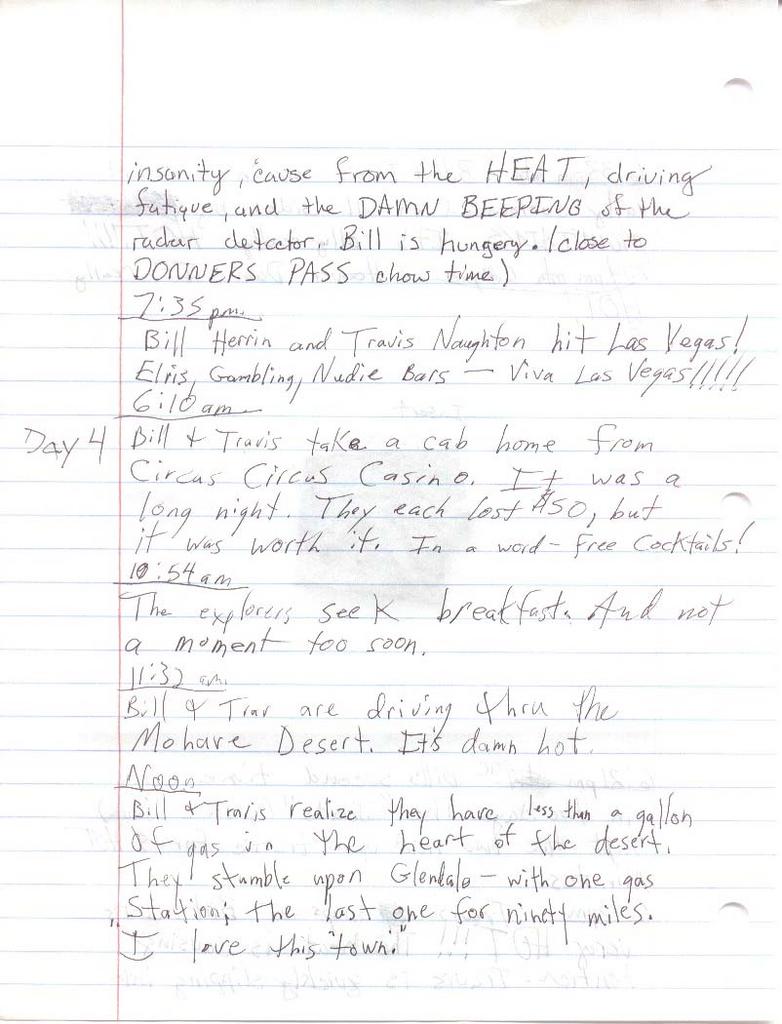 insanity, 'cause from the HEAT, driving
fatique, and the DAMN BEEPING of the
radar detector. Bill is hungery. (close to
DONNERS PASS chow time)
7:35 pm
Bill Herrin and Travis Naughton hit Las Vegas!
Elvis, Gambling, Nudie Bars — Viva Las Vegas!!!!!
6:10 am
Day 4 Bill & Travis take a cab home from
Circus Circus Casino. It was a
long night. They each lost $50, but
it was worth it. In a word - free cocktails!
10:54 am
The explorers seek breakfast. And not
a moment too soon.
11:32 am
Bill & Trav are driving thru the
Mohave Desert. It's damn hot.
Noon
Bill & Travis realize they have less than a gallon
of gas in the heart of the desert.
They stumble upon Glendale - with one gas
Station; the last one for ninety miles.
"I love this town."